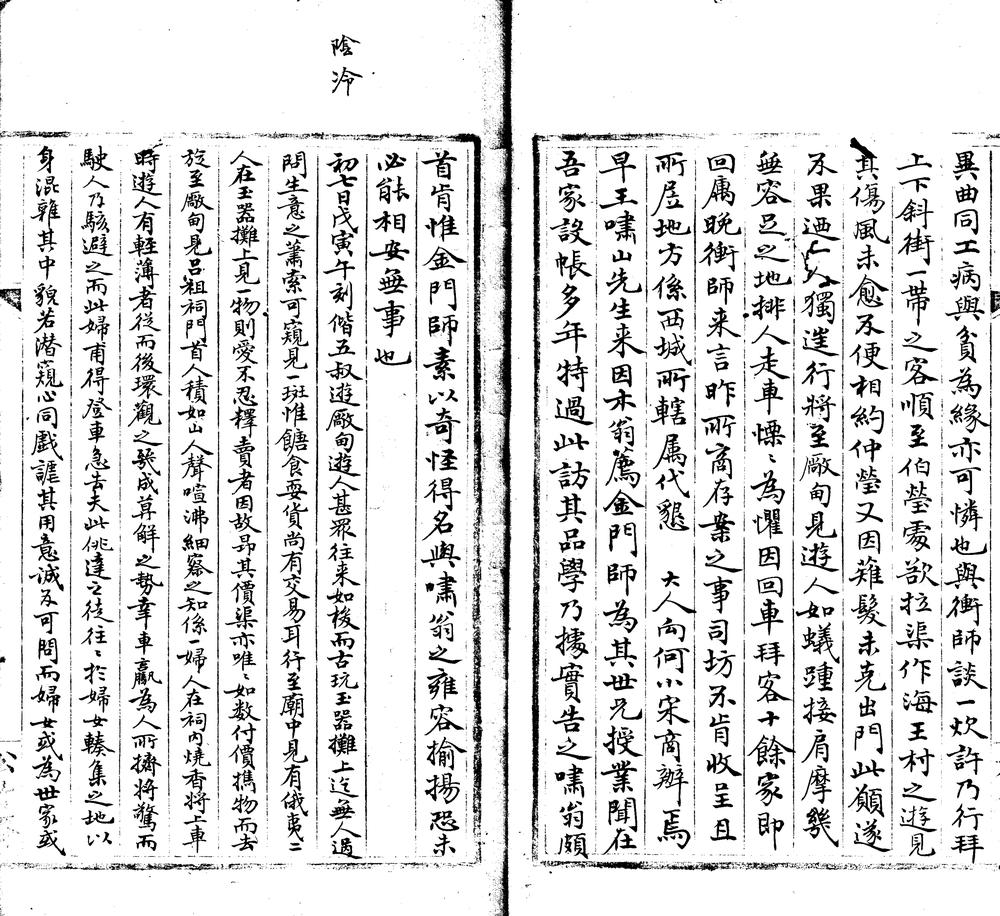 異曲同工病與貧為緣亦可憐也與衡師談一炊許乃行拜
上下斜街一帶之客順至伯瑩處欲拉渠作海王村之遊見
其傷風未愈不便相約仲瑩又因薙髮未克出門此願遂
不果迺獨進行將至廠甸見遊人如蟻踵接肩摩幾
無容足之地排人走車慄〻為懼因回車拜客十餘家即
回寓晚衡師來言昨所商存案之事司坊不肯收呈且
所居地方係西城所轄屬代懇 大人向何小宋商辦焉
早王嘯山先生來因木翁薦金門師為其世兄授業聞在
吾家設帳多年特過此訪其品學乃據實告之嘯翁頗
首肯惟金門師素以奇怪得名與嘯翁之雍容揄揚恐未
必能相安無事也
陰冷
初七日戊寅午刻偕五叔遊廠甸遊人甚眾往來如梭而古玩玉器攤上迄無人過
問生意之蕭索可窺見一斑惟餹食耍貨尚有交易耳行至廟中見有俄夷二
人在玉器攤上見一物則愛不忍釋賣者因故昂其價渠亦唯〻如數付價攜物而去
旋至廠甸見呂祖祠門首人積如山人聲喧沸細察之知係一婦人在祠內燒香將上車
時遊人有輕薄者從而後環觀之幾成莫解之勢幸車驘為人所擠將驚而
駛人乃駭避之而此婦甫得登車急去夫此佻達之徒往〻於婦女轃集之地以
身混雜其中貌若潛窺心同戲謔其用意誠不可問而婦女或為世家或